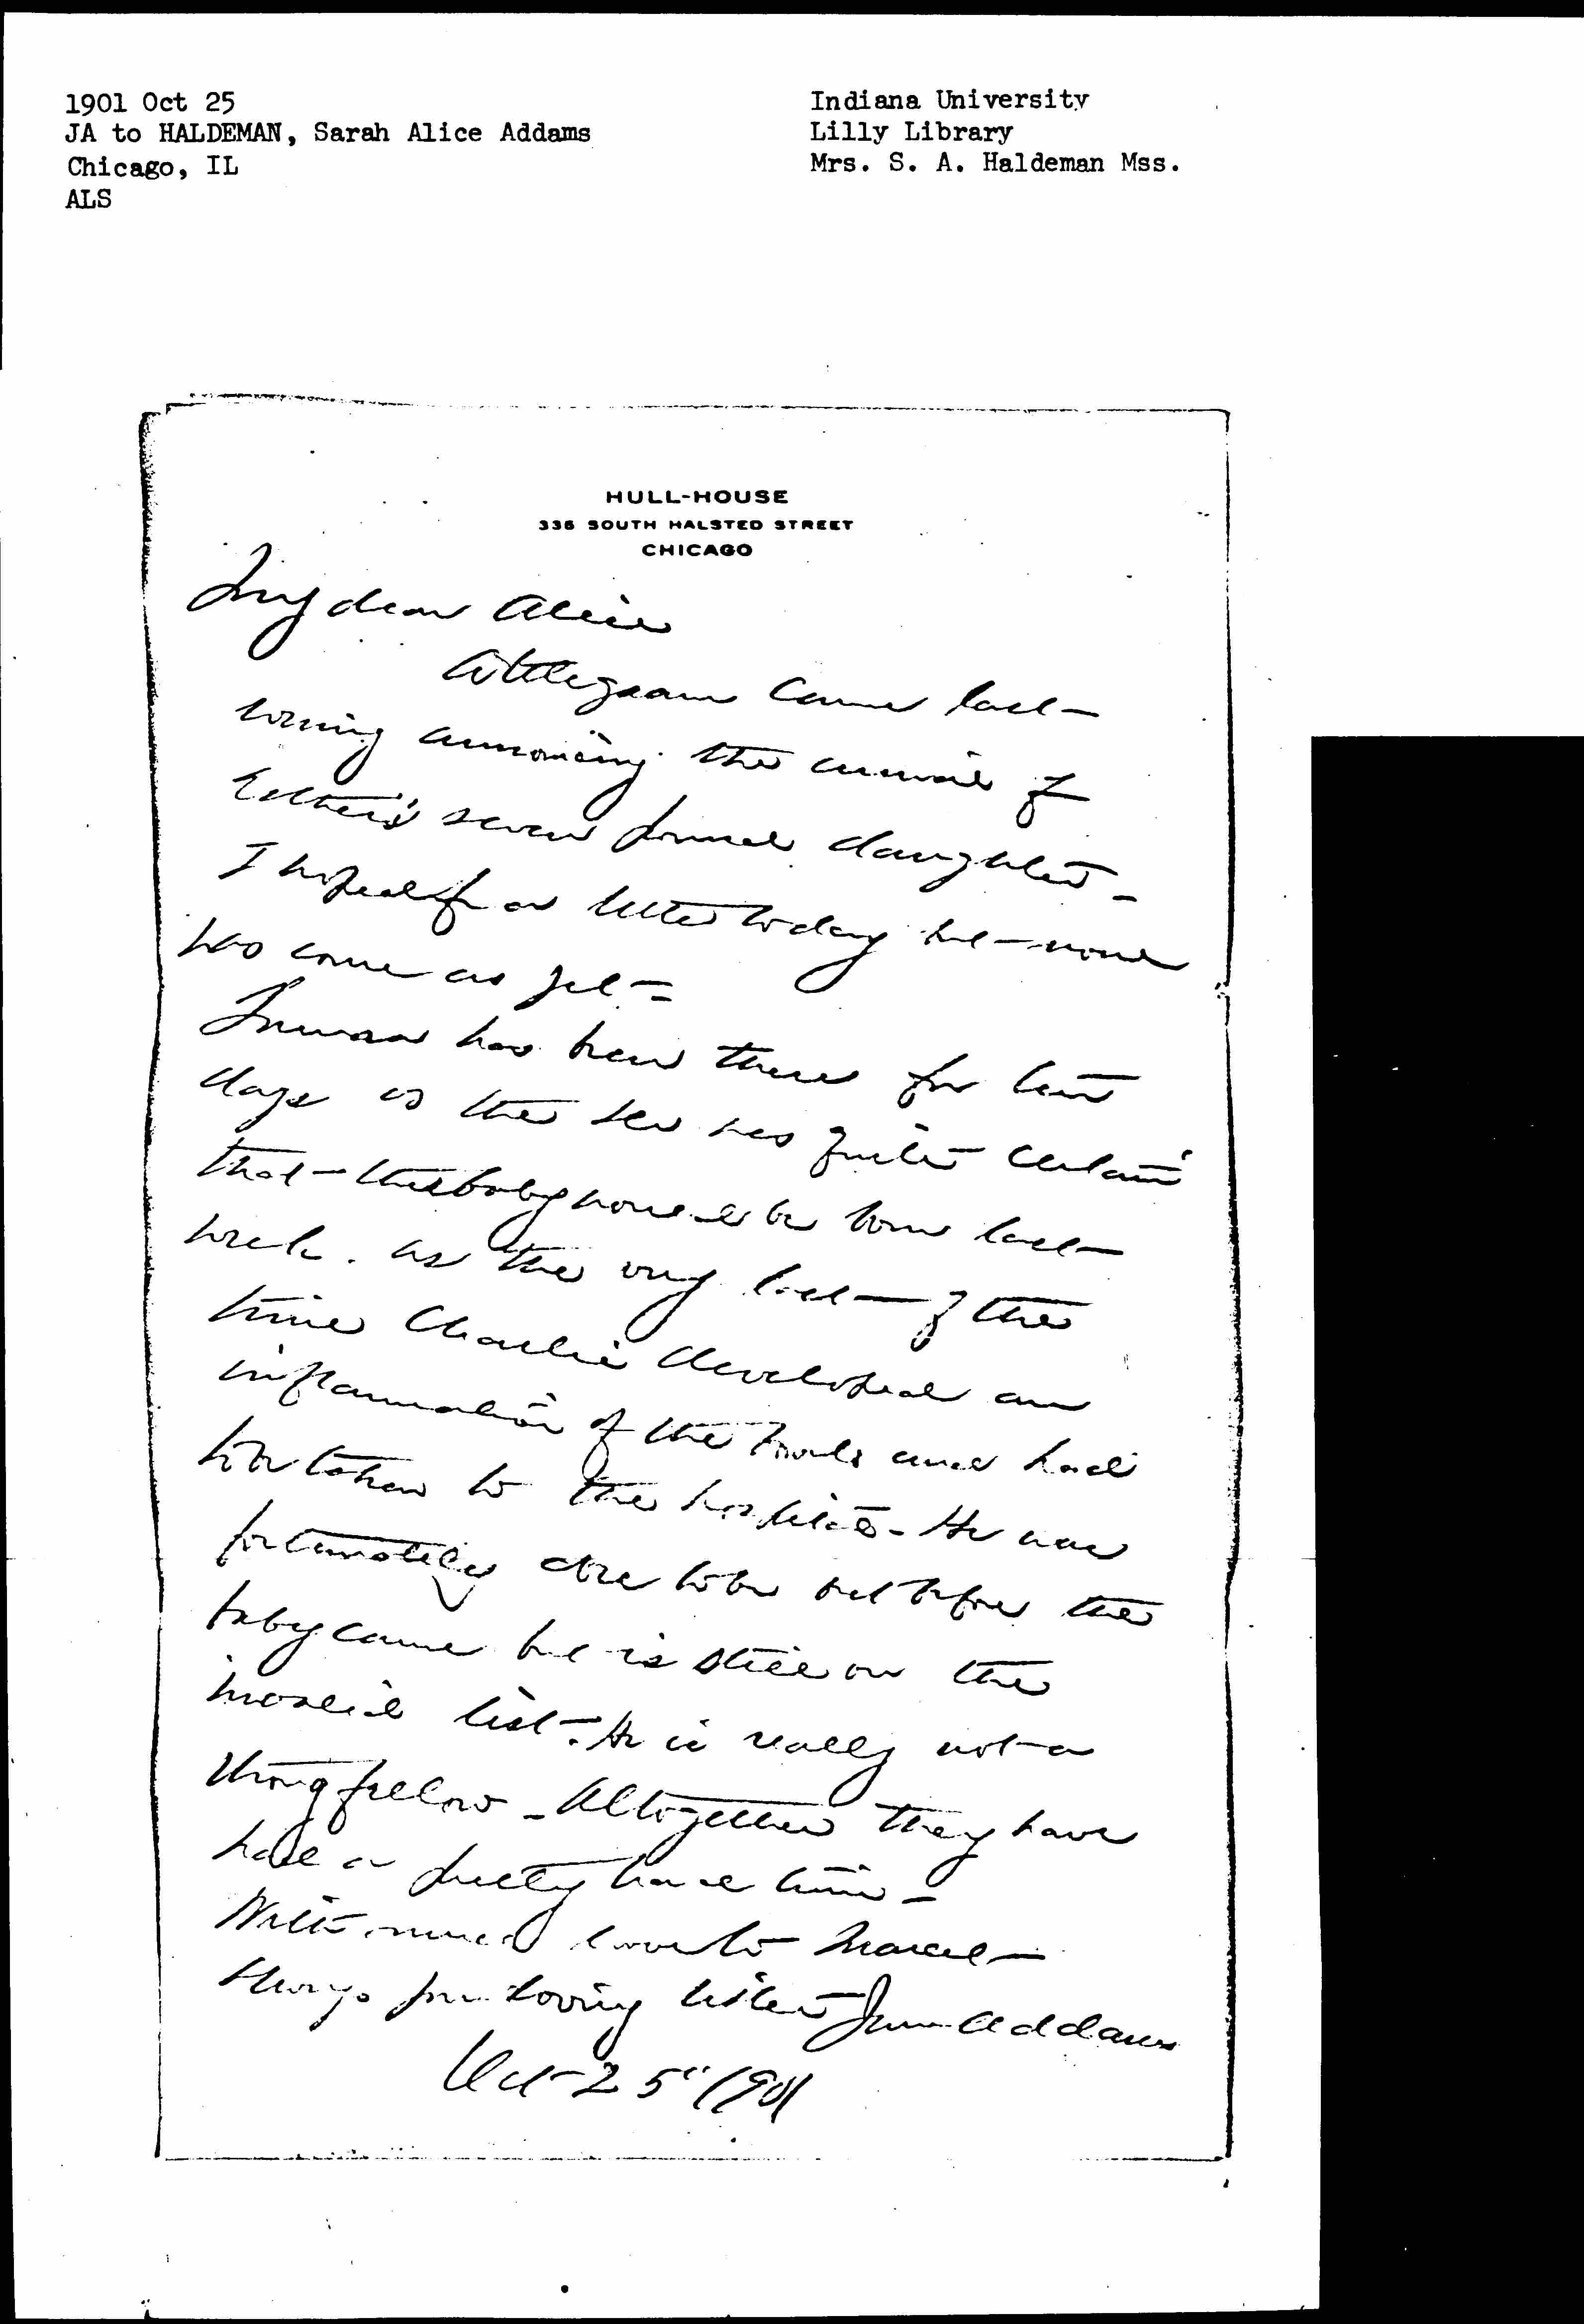 1901 Oct 25
JA to HALDEMAN, Sarah Alice Addams
Chicago, IL
ALS
Indiana University
Lilly Library
Mrs. S. A. Haldeman Mss.
HULL-HOUSE
335 SOUTH HALSTED STREET
CHICAGO
My dear Alice
A telegram came last
evening announcing the arrival of
Esther's seven pound daughter —
I hoped for a letter today but none
has come as yet —
has been there for ten
days as the Dr was quite certain
that the baby would be born last
week. At the very last of the
time Charlie developed an
inflammation of the bowels and had
to be taken to the hospital — He was
fortunately able to be out before the
baby came but is still on the
invalid list — He is really not a
strong fellow — Altogether they have
had a pretty hard time —
With much love to Marcet —
Always your loving sister Jane Addams
Oct 25" 1901